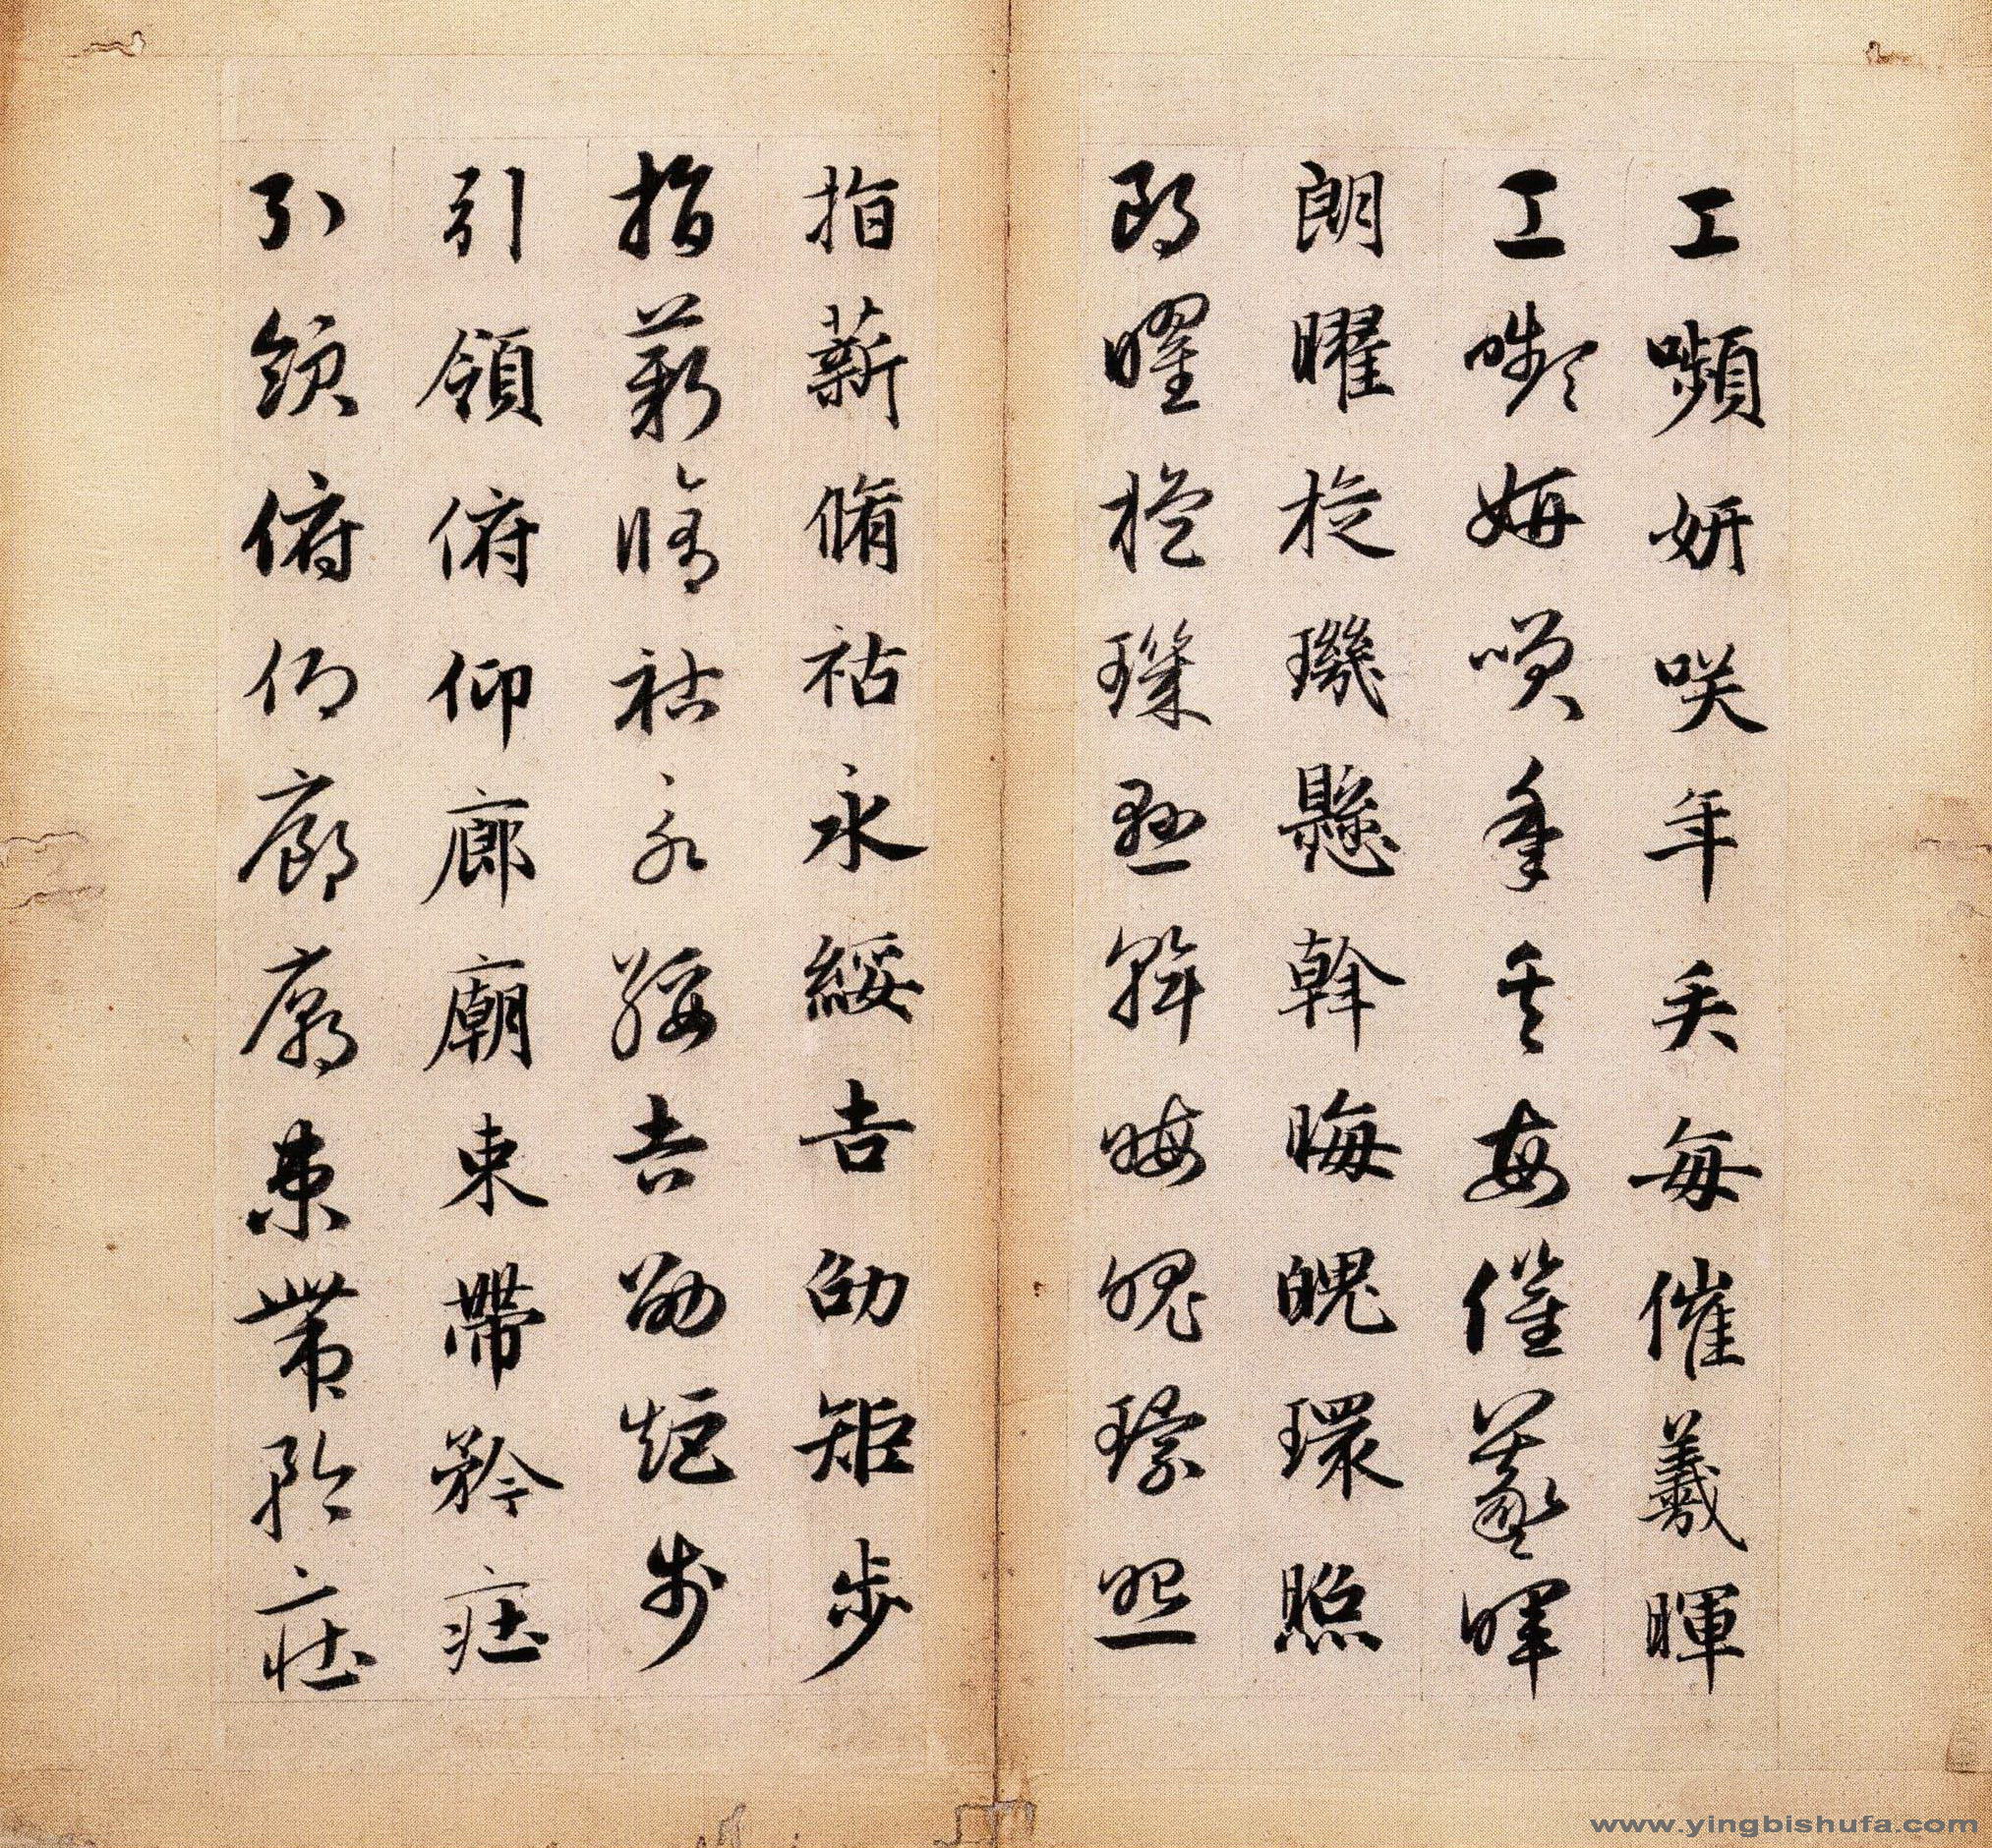 工嚬妍咲年矢每催羲暉
工嚬妍笑年矢每催羲暉
朗曜旋璣懸斡晦魄環照
朗曜旋璣懸斡晦魄環照
指薪脩祜永綏吉劭矩步
指薪脩祜永綏吉劭矩步
引領俯仰廊廟束帶矜莊
引領俯仰廊廟束帶矜莊
www.yingbishufa.com